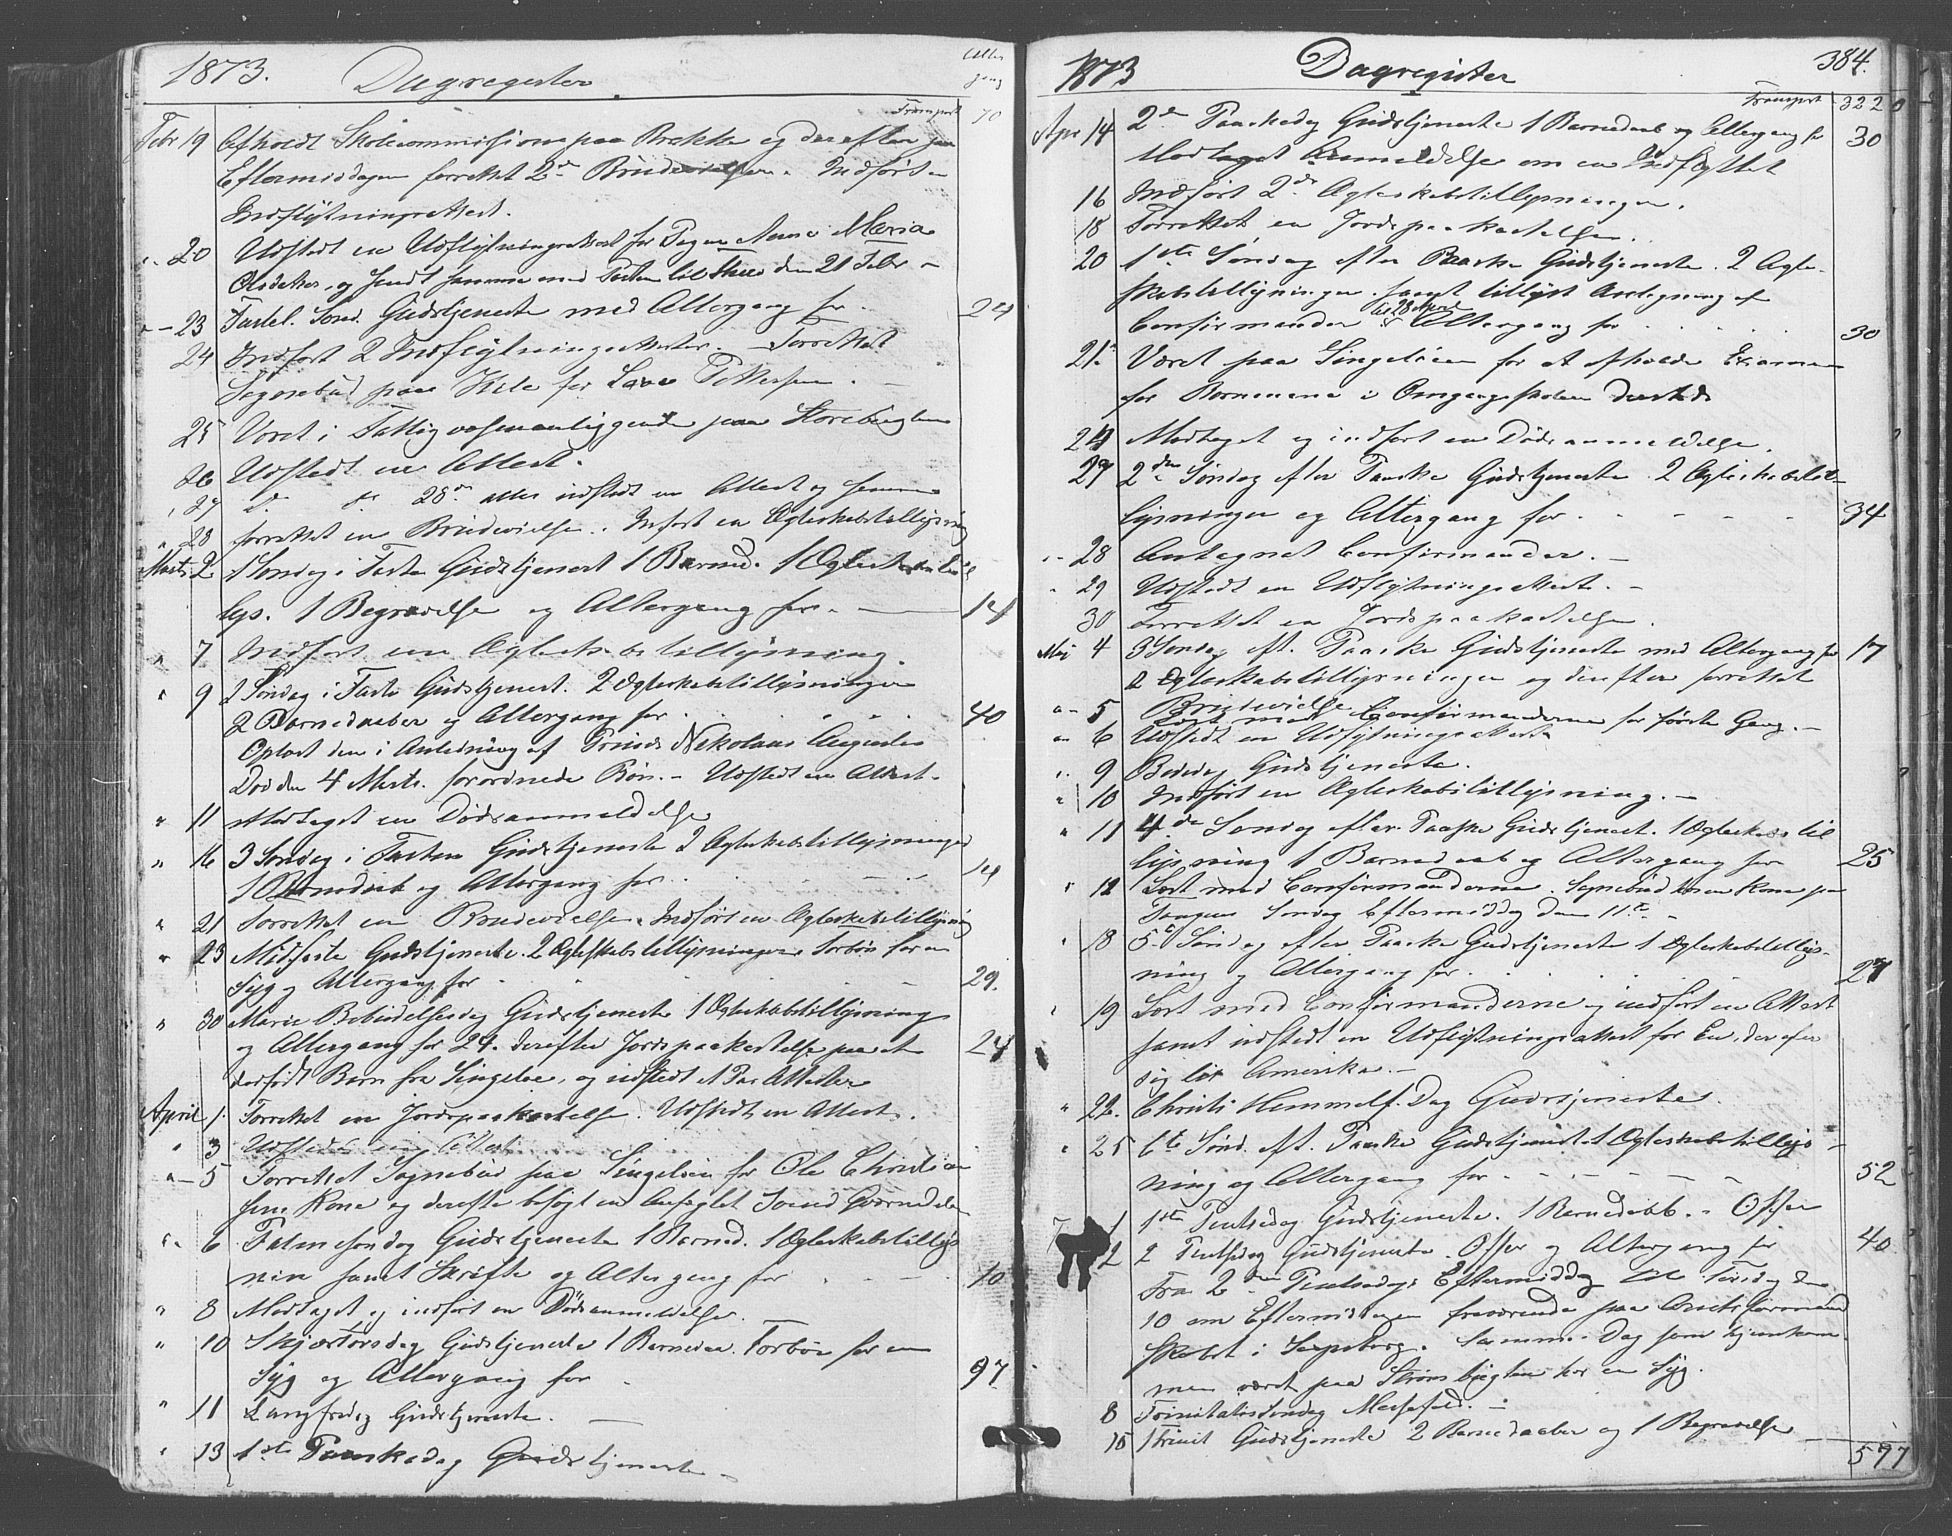 1873. Dagregister Alter
gang
Transport 70
Febr 19 Afholdt Skolecommission paa Brekke og derefter paa
Eftermiddagen forrettet 2de Brudevielser. Indført
Indflytningsattest.
" 20 Udstedt en Udflytningsattest for Pigen Anne Maria
Olsdatter, og sendt samme med Posten til den 21 Febr -
" - 23 Fastel. Sønd. Gudstjeneste med Altergang for . 24
24 Indført 2 Indflytningsattester. - Forrettet
Sognebud paa Kile for Lars Pettersen. -
25 Været i Fattigvæsenanliggende paa Storebuglen
26 Udstedt en Attest.
" 27 do do 28de atter udstedt en Attest og samme
" 28 forrettet en Brudevielse. Indført en Ægteskabstillysning
Marts 2 1 Sønd. i Faste Gudstjenest 1 Barned. 1 Ægteskabstil
lys. 1 Begravelse og Altergang for. 14
" 7 Indført en Ægteskabstillysning.
" 9 2 Søndag i Faste Gudstjenest. 2 Ægteskabstillysninger
2 Barnedaaber og Altergang for . . . . 40
Oplæst den i Anledning af Prinds Nikolaus Augustus
Død den 4 Marts forordnede Bøn. - Udstedt en Attest.
" 11 Modtaget en Dødsanmeldelse
" 16 3 Søndag i Fasten Gudstjeneste 2 Ægteskabstillysninger
1 Barnedaab og Altergang for . . . 14
" 21 Forrettet en Brudevielse. Indført en Ægteskabstillysning
" 23 Midfaste Gudstjeneste. 2 Ægteskabstillysninger. Forbøn for en
Syg og Altergang for . . . 29.
" 30 Marie Bebudelsesdag Gudstjeneste 1 Ægteskabstillysning
og Altergang for 24. derefter Jordspaakastelse paa et 24
dødfødt Barn fra Singeløe, og udstedt et Par Attester
April 1. Forrettet en Jordspaakastelse. Udstedt en Attest.
" 3 Udstedt en Attest
" - 5 Forrettet Sognebud paa Singeløen for Ole Christian
sens Kone og derefter besøgt en Anfægtet Svend
" 6 Palmesøndag Gudstjeneste 1 Barned. 1 Ægteskabstillys
ning samt Skrifte og Altergang for . - . 10
" 8 Modtaget og indført en Dødsanmeldelse.
" 10 Skjærtorsdag Gudstjeneste 1 Barnedaab. Forbøn for en
Syg og Altergang for . 97
" 11 Langfredag Gudstjeneste. -
" 13 1ste Paaskedag Gudstjeneste -
1873 Dagregister 384.
Transport 322
Apr 14 2de Paaskedag Gudstjeneste 1 Barnedaab og Altergang for 30
Modtaget Anmeldelse om en Indflyttet
16 Indført 2de Ægteskabstillysninger.
18 Forrettet en Jordspaakastelse.
20 1ste Søndag efter Paaske Gudstjeneste. 2 Ægte-
skabstillysninger. samt tillyst Antegning af
Confirmander til 28 Altergang for . . . . . 30
21. Været paa Singeløen for at afholde Examen
for Børnene i Omgangsskolen dersteds
24 Modtaget og indført en Dødsanmeldelse.
27 2den Søndag efter Paaske Gudstjeneste 2 Ægteskabstil-
lysninger og Altergang for . - - - - 34
" - 28 Antegnet Confirmander. -
" 29 Udstedt en Udflytningsattest. -
30 Forrettet en Jordspaakastelse.
Mai 4 3 Søndag eft. Paaske Gudstjeneste med Altergang for 17
2 Ægteskabstillysninger og derefter forrettet
Brudevielse
" - 5 Læst med Confirmanderne for første Gang. -
" 6 Udstedt en Udflytningsattest
" 9 Bededag Gudstjeneste.
" 10 Indført en Ægteskabstillysning. -
" 11 4de Søndag efter Paaske Gudstjenest. 1 Ægteskabstil
lysning 1 Barnedaab og Altergang for 25
" 12 Læst med Confirmanderne. Sognebud hos en Kone paa
Tangen Søndag Eftermiddag den 11te. -
" 18 5te Søndag efter Paaske Gudstjeneste 1 Ægteskabstillys-
ning og Altergang for . . . . . 27
" 19 Læst med Confirmanderne og indført en Attest
samt udstedt en Udflytningsattest for En, der reiser
sig til Amerika. -
" 22. Christi Himmelf. Dag Gudstjeneste.
" 25 6te Sønd. eft. Paaske Gudstjenest. 1 Ægteskabstillys
ning og Altergang for - - - - - 52
1 1ste Pintsedag Gudstjeneste. 1 Barnedaab. - Offer
2 2 Pintsedag Gudstjeneste. Offer og Altergang for 40
Fra 2den Pintsedags Eftermiddag til Tirsdag den
10 om Eftermiddagen fraværende paa Amtsformand
skabet i Sarpsborg. Samme Dag som hjemkom
men været paa Strømsbuglen hos en Syg.
8 Trinitatissøndag Messefald. -
15 1 Trinit Gudstjeneste 2 Barnedaaber og 1 Begravelse
577